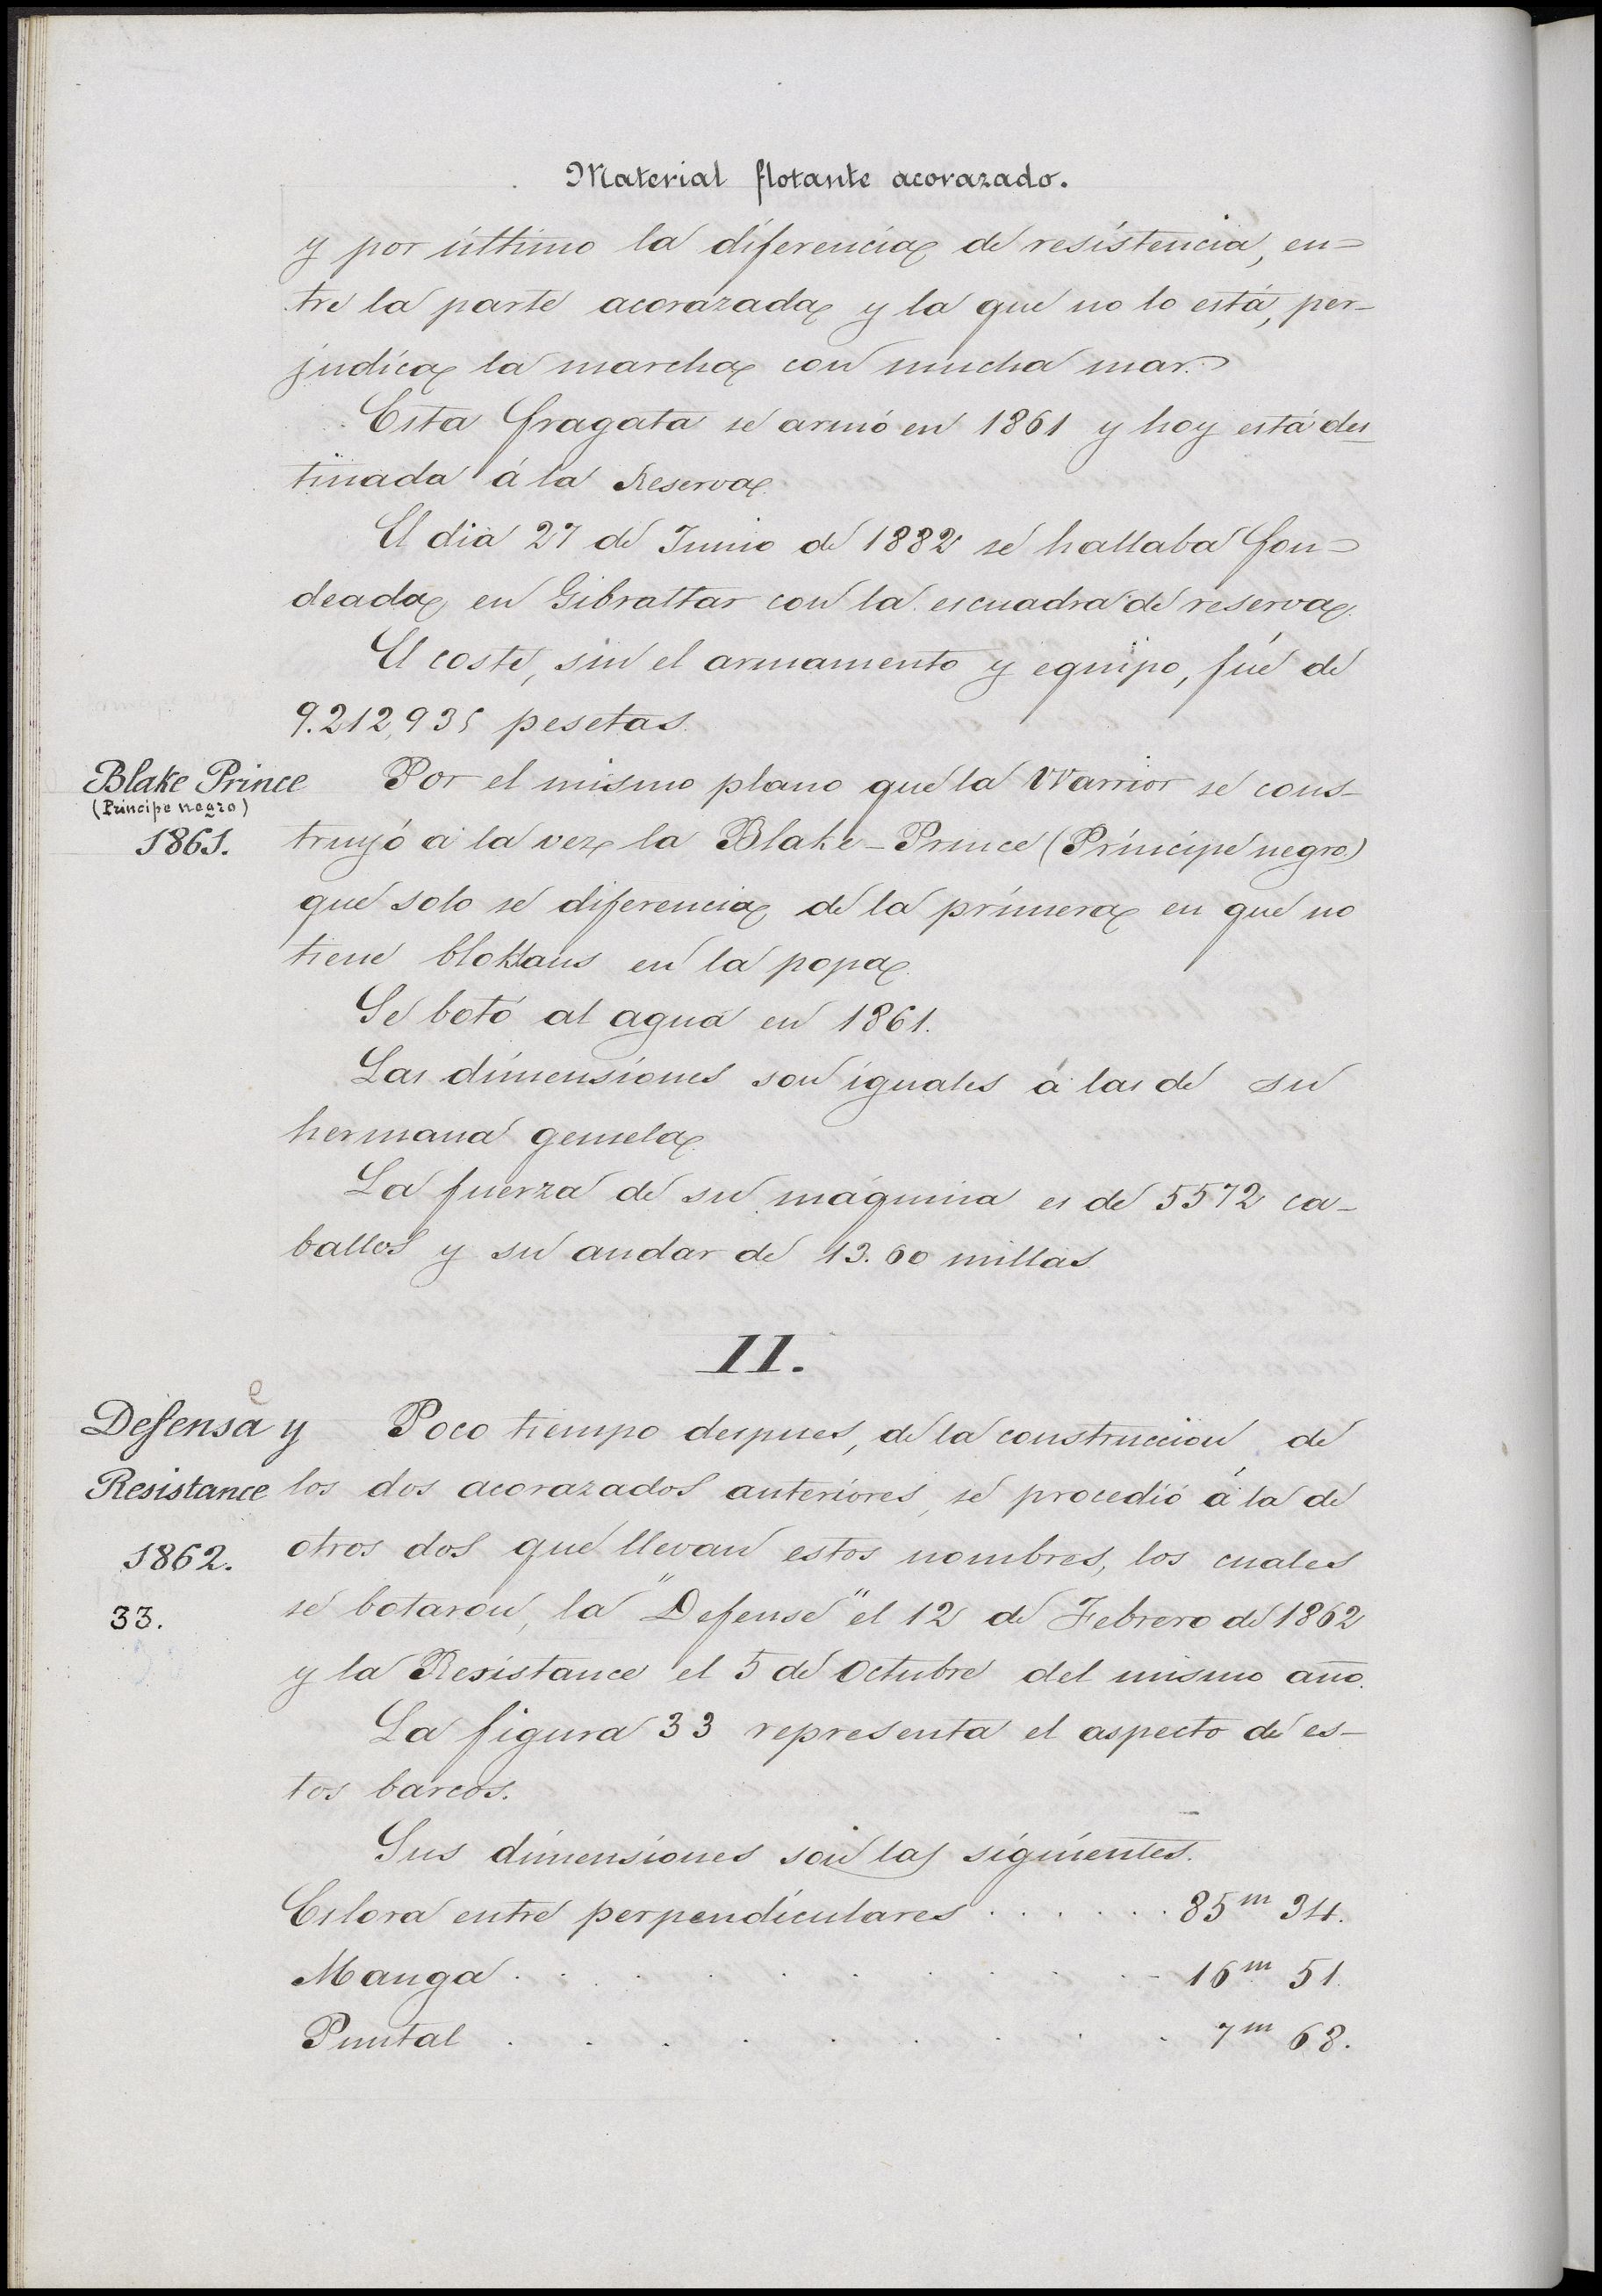 Material flotante acorazado.
y por último la diferencia de resistencia, en=
tre la parte acorazada y la que no lo está, per-
judica la marcha con mucha mar.
Esta fragata se armó en 1861 y hoy está des
tinada á la Reserva.
El dia 27 de Junio de 1882 se hallaba fon=
deada en Gibraltar con la escuadra de reserva.
El coste, sin el armamento y equipo, fué de
9.212,935 pesetas.
Blake Prince
(Principe negro)
1861.
Por el mismo plano que la Warrior se cons-
truyó a la vez la Blake-Prince (Príncipe negro)
que solo se diferencia de la primera en que no
tiene bloklaus en la popa.
Se botó al agua en 1861.
Las dimensiones son iguales á las de su
hermana gemela.
La fuerza de su máquina es de 5572 ca-
ballos y su andar de 13.60 millas
II.
Defensa e y
Resistance
1862.
33.
Poco tiempo despues, de la construccion de
los dos acorazados anteriores, se procedió á la de
otros dos que llevan estos nombres, los cuales
se botaron, la "Defense" el 12 de Febrero de 1862
y la Resistance el 5 de Octubre del mismo año.
La figura 33 representa el aspecto de es-
tos barcos.
Sus dimensiones son las siguientes.
Eslora entre perpendiculares . . . . . . 85m 34.
Manga . . . . . . . . . . 16m 51.
Puntal . . . . . . . . . 7m 68.